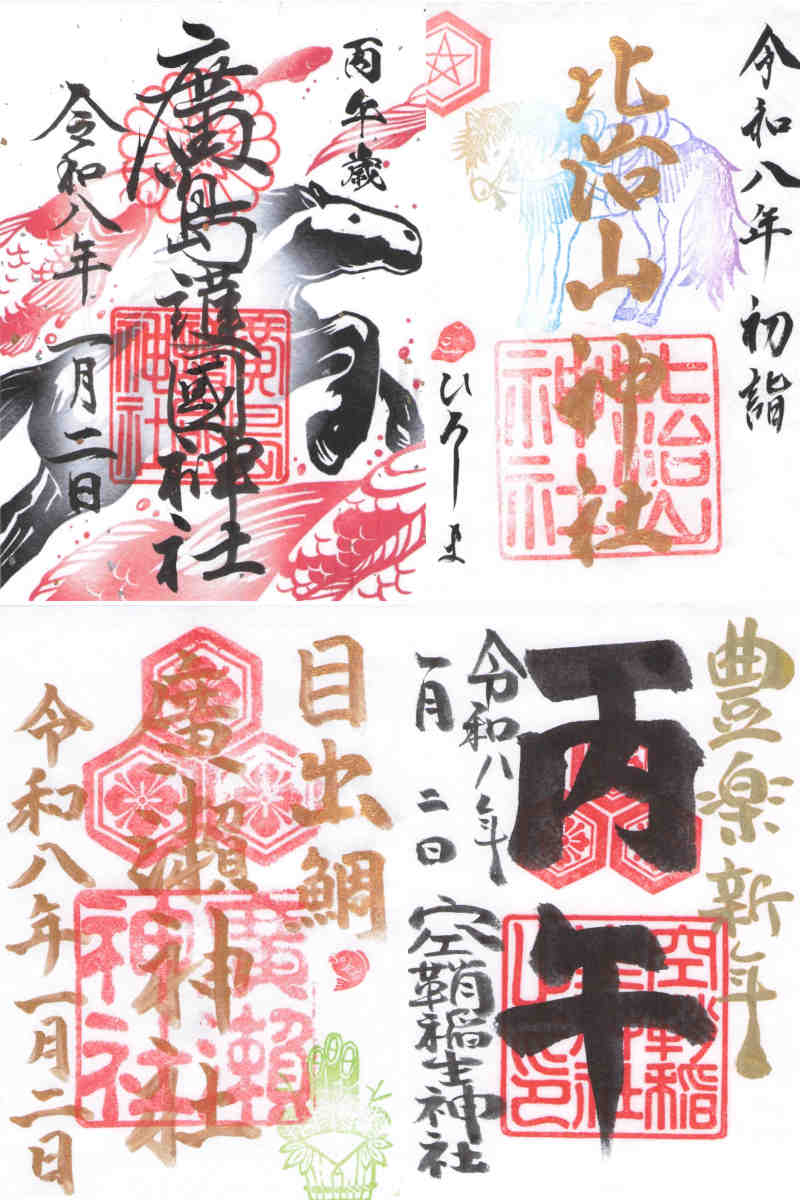 丙午歳
廣島護國神社
令和八年
一月二日
廣島護國神社
令和八年初詣
比治山神社
ひろしま
比治山神社
目出鯛
廣瀬神社
令和八年一月二日
廣瀬神社
豊楽新年
丙午
令和八年
一月二日
空鞘稲生神社